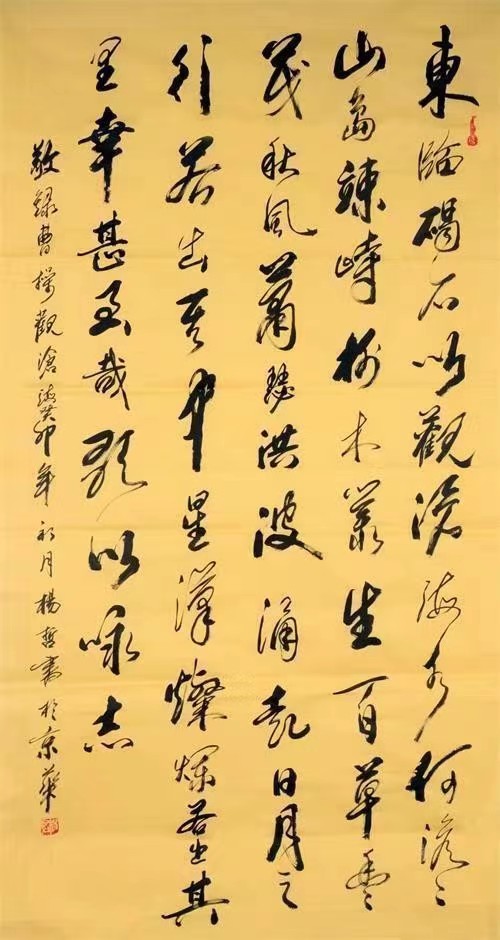 東臨碣石以觀滄海水何澹々
山島竦峙樹木叢生百草豐
茂秋風蕭瑟洪波涌起日月之
行若出其中星漢燦爛若出其
里幸甚至哉歌以咏志
敬録曹操觀滄海癸卯年初月楊哲書於京華